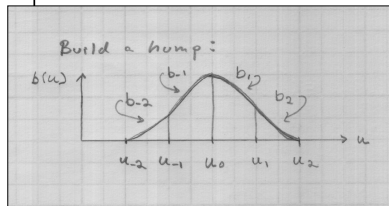 Build a hump:
b(u)
b-1
b1
b-2
b2
u
u-2 u-1 u0 u1 u2